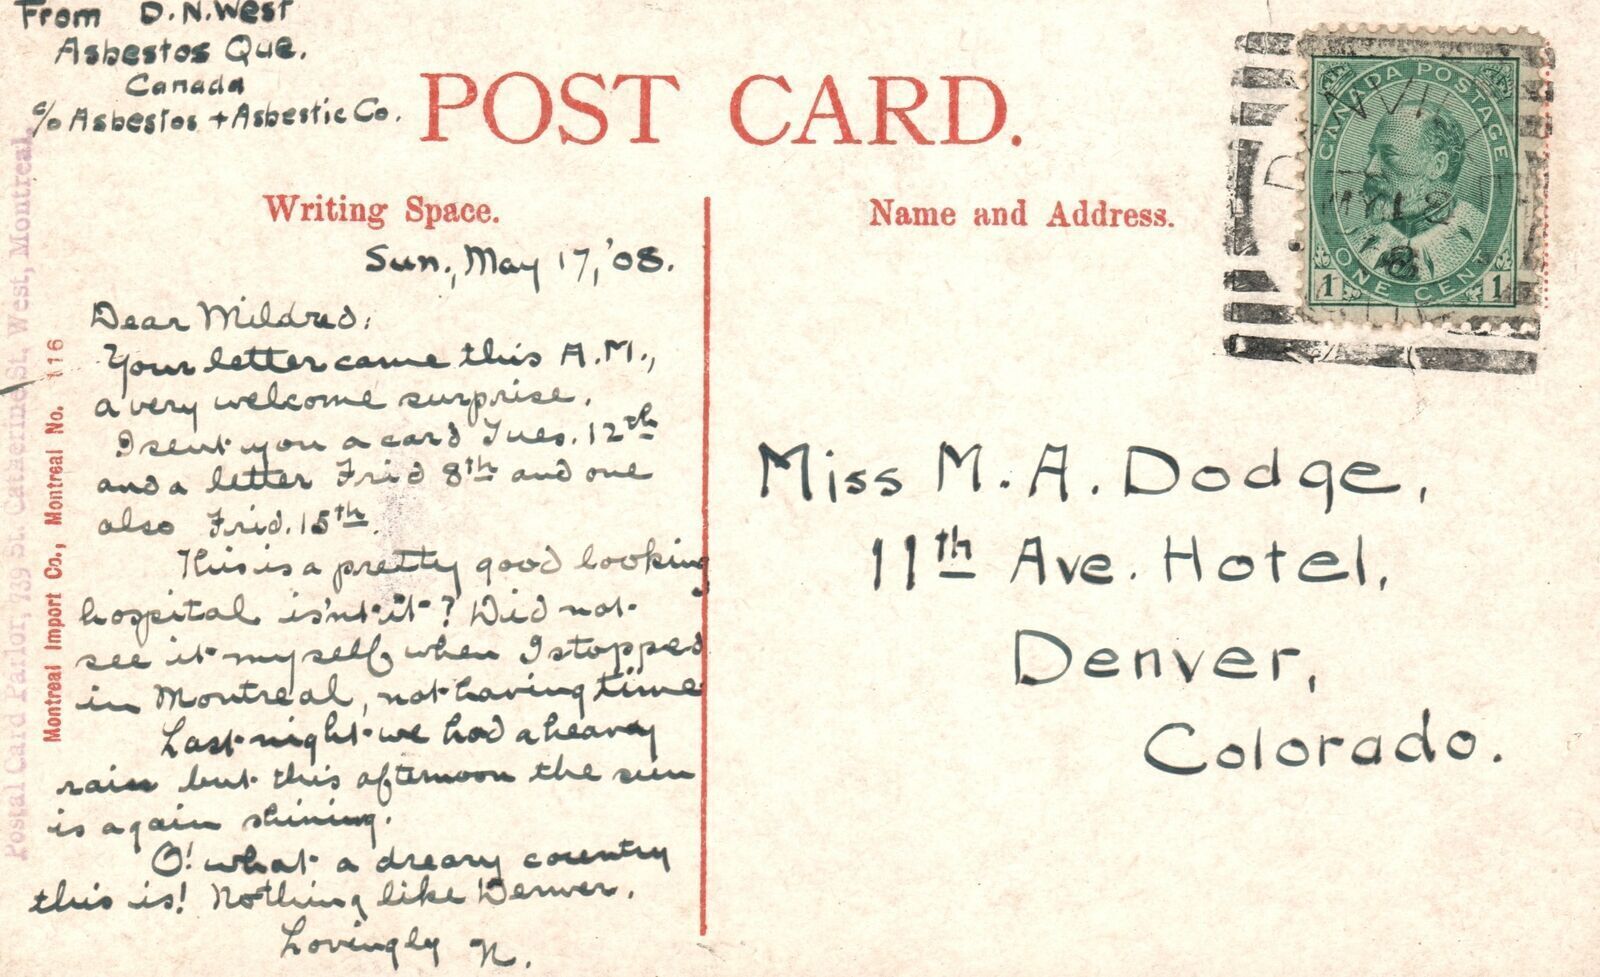 From D.N. West
Asbestos Que.
Canada
c/o Asbestos + Asbestic Co.
POST CARD.
Writing Space.
Sun., May 17, '08.
Dear Mildred:
Your letter came this A.M.,
a very welcome surprise.
I sent you a card Tues. 12th
and a letter Frid 8th and one
also Frid. 15th.
This is a pretty good looking
hospital isn't it? Did not
see it myself when I stopped
in Montreal, not having time
Last night we had a heavy
rain but this afternoon the sun
is again shining.
O! what a dreary country
this is! Nothing like Denver.
Lovingly N.
Postal Card Parlor, 789 St. Catherine St. West, Montreal.
Montreal Import Co., Montreal No. 116
Name and Address.
Miss M. A. Dodge,
11th Ave. Hotel,
Denver,
Colorado.
CANADA POSTAGE
1 ONE CENT 1
DANVILLE
MY 18
08